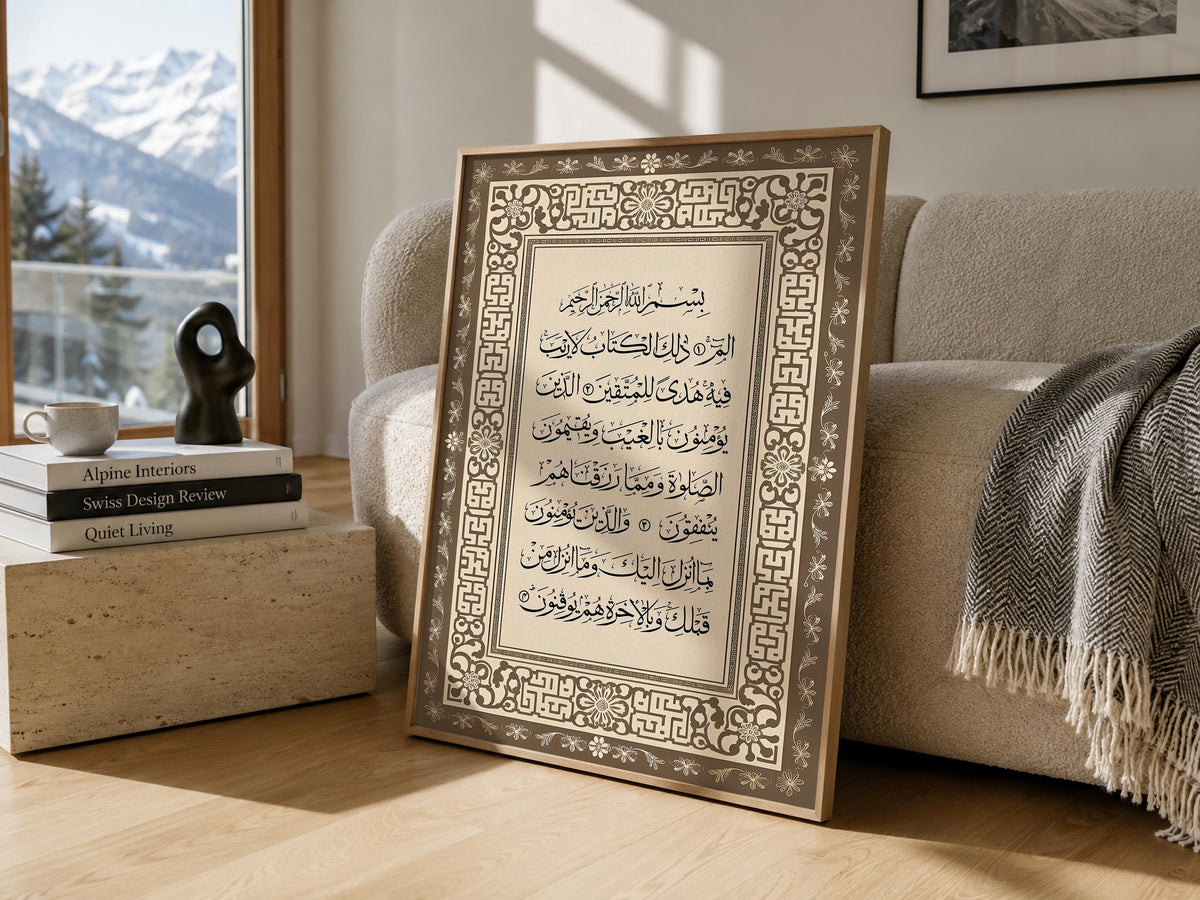 بسم الله الرحمن الرحيم
الم ۝١ ذلك الكتاب لا ريب
فيه هدى للمتقين ۝٢ الذين
يؤمنون بالغيب ويقيمون
الصلوة ومما رزقناهم
ينفقون ۝٣ والذين يؤمنون
بما أنزل اليك وما أنزل من
قبلك وبالآخرة هم يوقنون ۝٤
Alpine Interiors
Swiss Design Review
Quiet Living